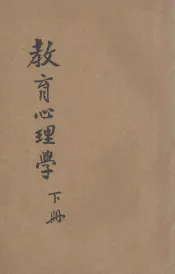 教育心理學
下册